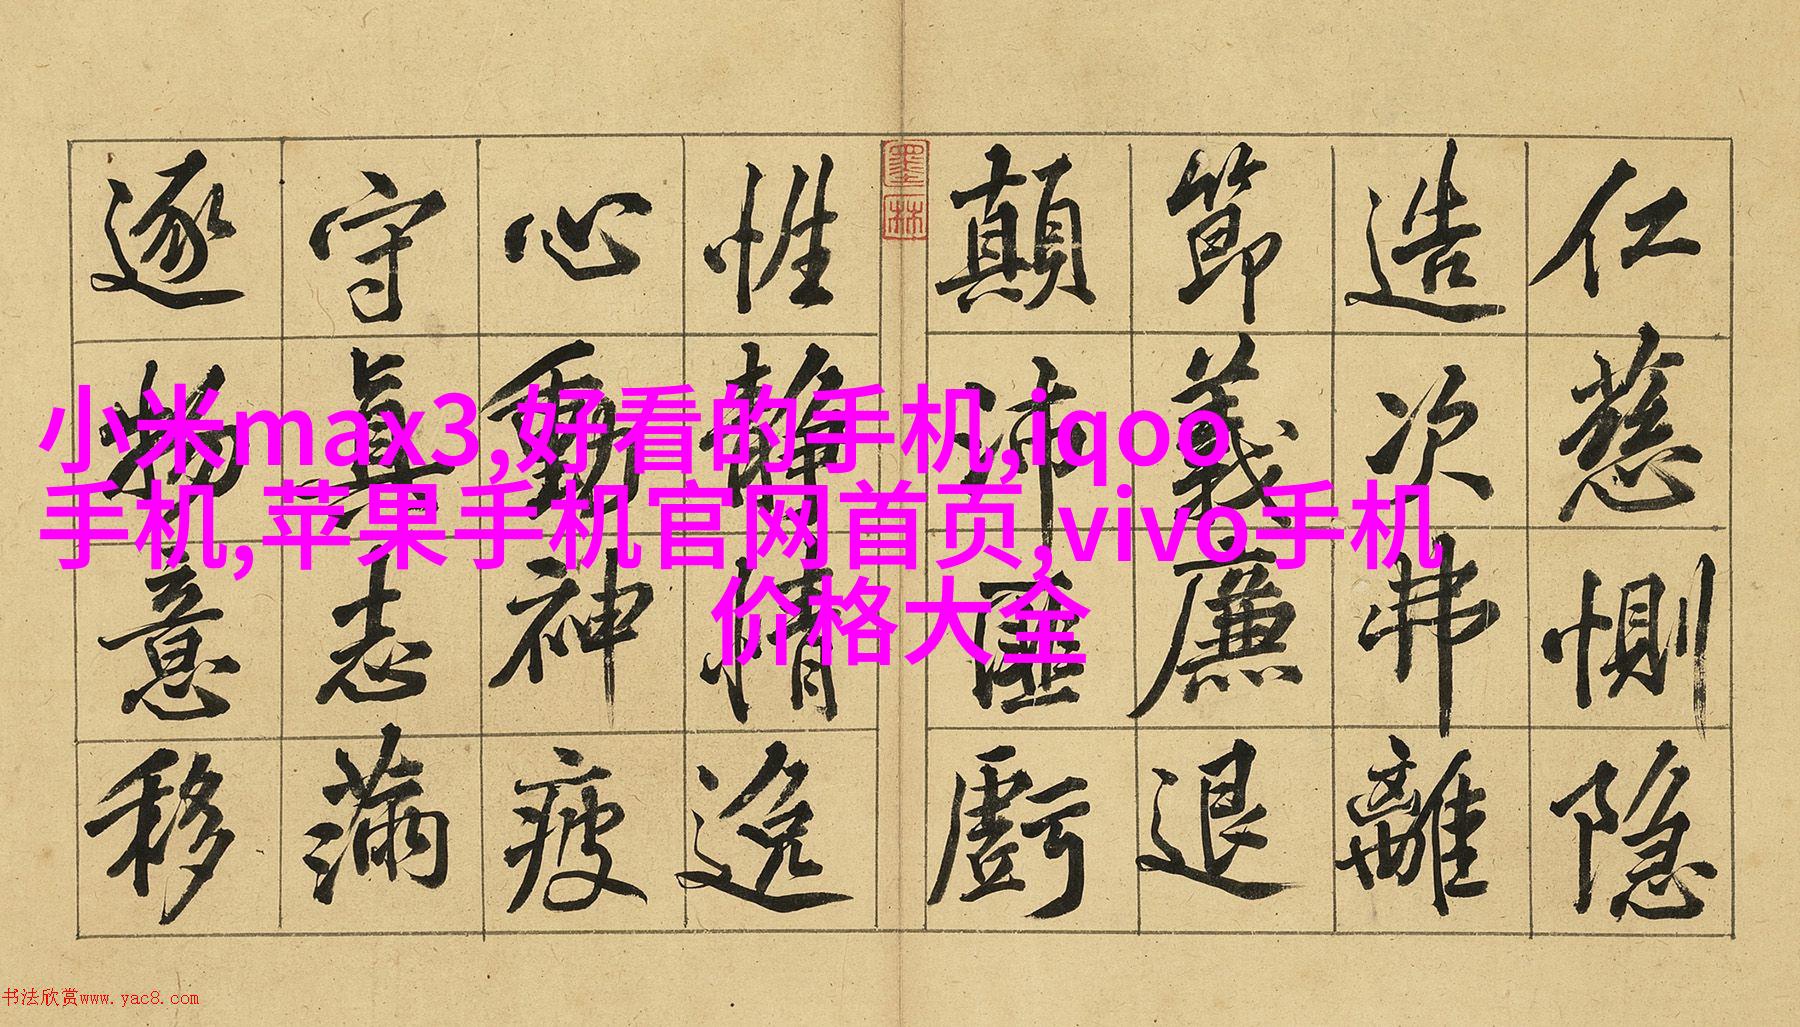 仁慈惻隐
造次弗離
節義廉退
顛沛匪虧
墨林
性静情逸
心動神疲
守真志滿
逐物意移
小米max3,好看的手机,iqoo
手机,苹果手机官网首页,vivo手机
价格大全
书法欣赏www.yac8.com